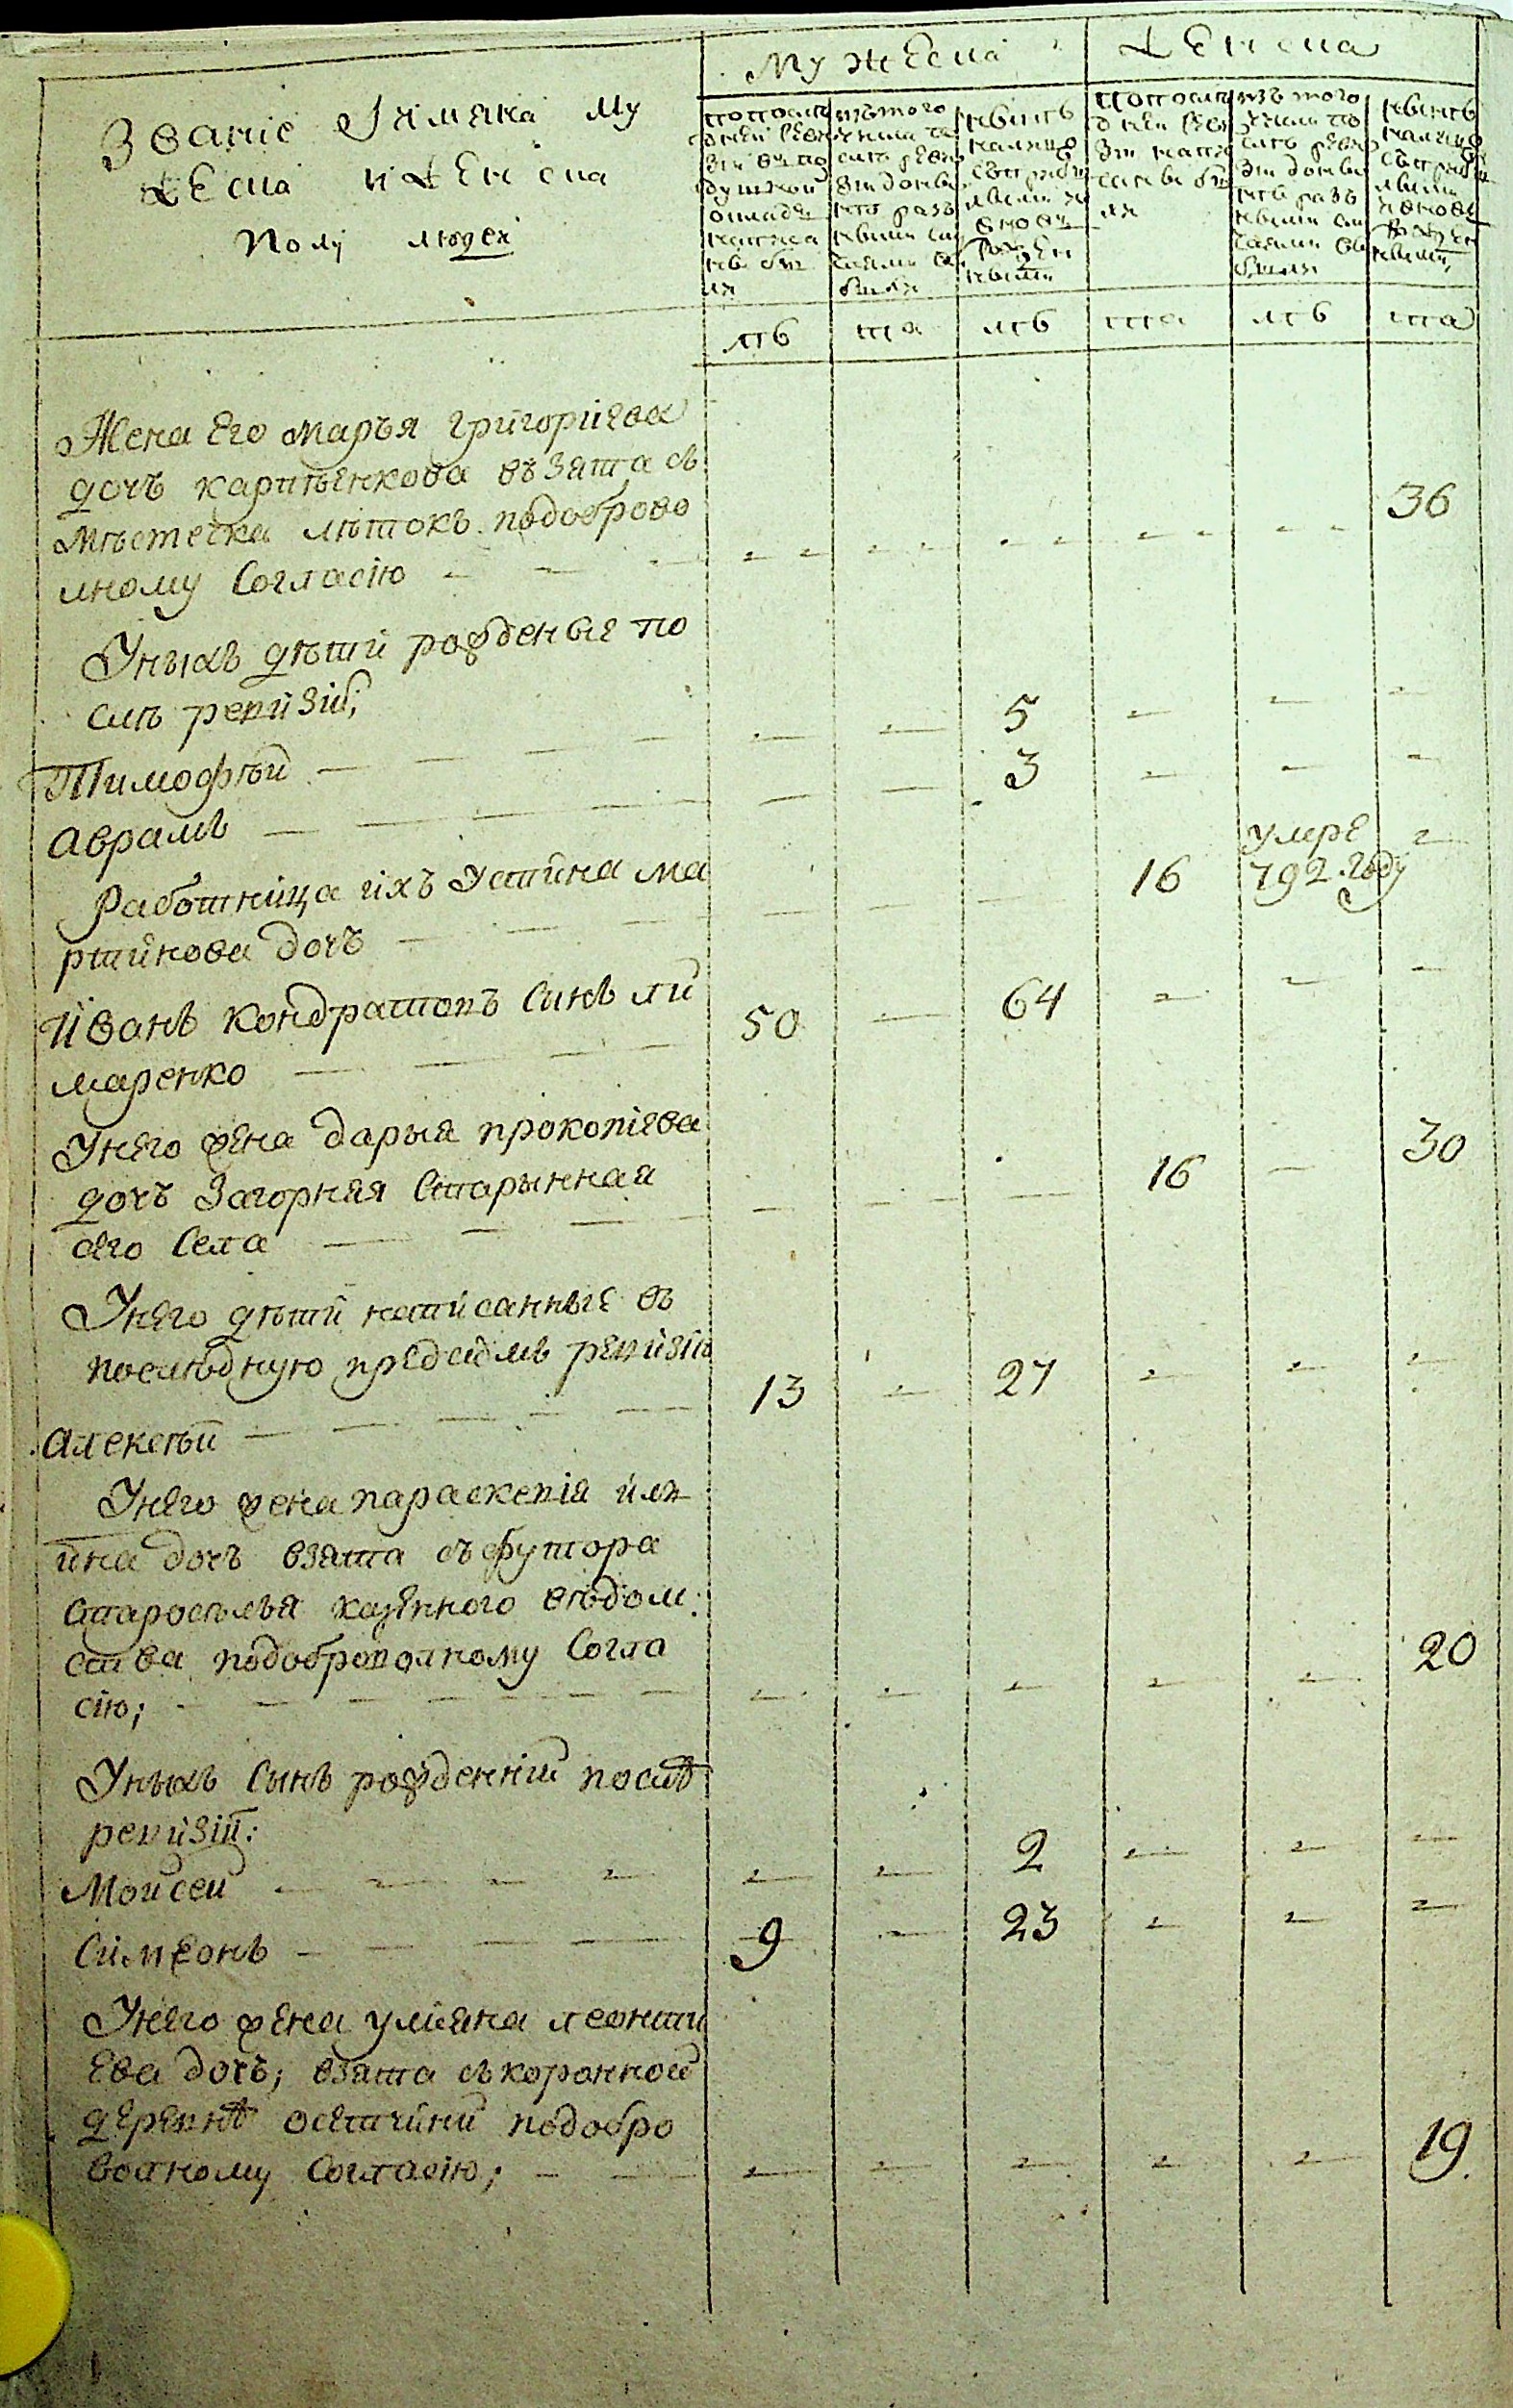 Мужеска
Женска
Званіе Имяна му
жеска и женска
полу людей
попослѣ
дней реви
зіи въ по
душной
окладъ
написа
ны бы
ли
изътого
числа по
слѣ реви
зіи донынѣ
ревизіи
ными слу
чаями вы
были
нынѣ
налицо
съ прибы
лыми и
вновь
рожден
ными
попослѣ
дней реви
зіи напи
саны бы
ли
изъ того
числа по
слѣ реви
зіи донынѣ
разъ
ными слу
чаями вы
были
нынѣ
налицо
съ прибы
лыми
и вновь
рожден
ными
лѣ та лѣ та лѣ та
Жена Его марья григоріева
дочь карпѣнкова въ зята съ
мѣстечка лѣтокъ подоброво
лному Согласію 36
Унихъ дѣти рожденые по
слѣ ревизіи;
Тимофѣй 5
Аврамъ 3
Работница ихъ Устина ма 16 умре
ртинова дочь 792 году
Иванъ Кондратовъ Синъ ли 50 64
маренко
Унего жена дарья прокопіева
дочь Загорняя Старынная 16 30
сего Села
Унего дѣти написанные въ
послѣдную предсимъ ревизію
Алексѣй 13 27
Унего жена параскевія иль
ина дочь взята съ футора
Старосѣлья казенного вѣдом:
ства подобровол­ному Согла
сію; 20
Унихъ Сынъ рожденній послѣ
ревизіи:
Мойсей 2
Симеонъ 9 23
Унего жена уляна леонти
Ева дочь; взята съ коронной
деревнѣ осетчини подобро
волному Согласію; 19.